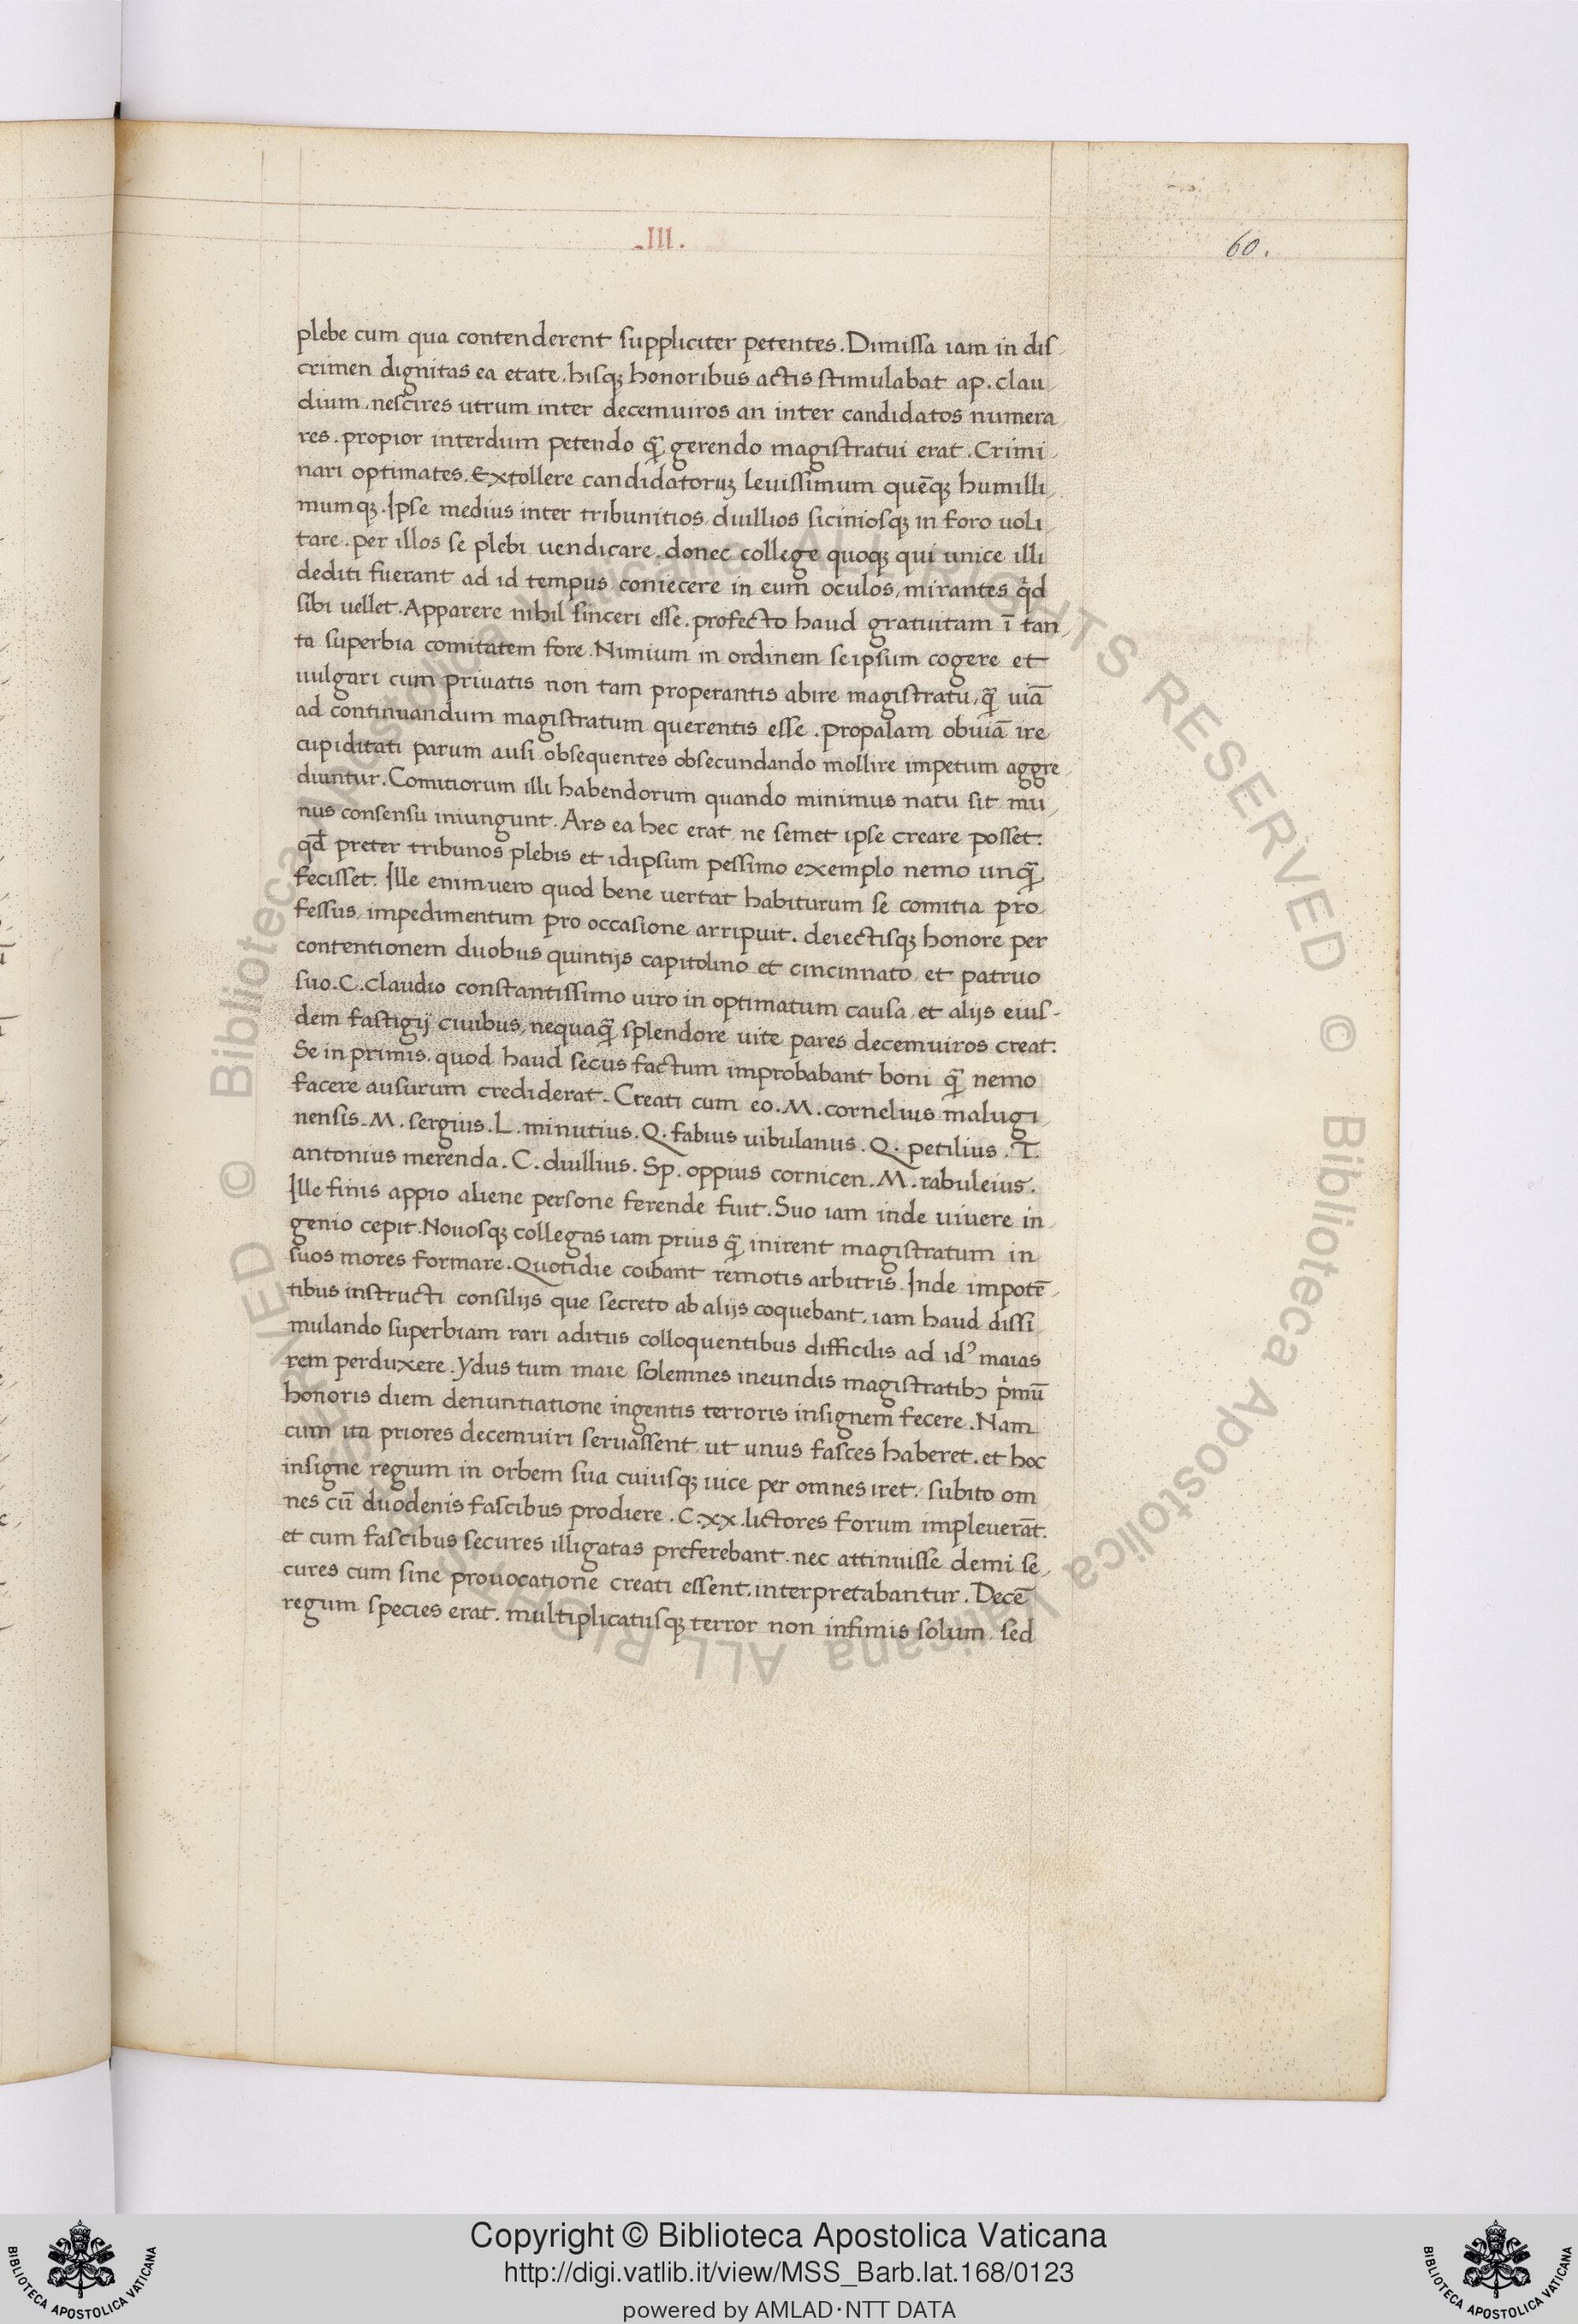 .III.
60.
plebe cum qua contenderent suppliciter petentes. Dimissa iam in dis-
crimen dignitas ea etate, hisq; honoribus actis stimulabat ap. clau-
dium. nescires utrum inter decemuiros an inter candidatos numera-
res. propior interdum petendo q̃ gerendo magistratui erat. Crimi-
nari optimates. Extollere candidatoruʒ leuissimum quēq; humilli-
mumq;. Ipse medius inter tribunitios, duillios siciniosq; in foro uoli-
tare. per illos se plebi uendicare. donec college quoq; qui unice illi
dediti fuerant ad id tempus coniecere in eum oculos, mirantes qd
sibi uellet. Apparere nihil sinceri esse. profecto haud gratuitam ī tan-
ta superbia comitatem fore. Nimium in ordinem se ipsum cogere et
uulgari cum priuatis non tam properantis abire magistratu, q̃ uiā
ad continuandum magistratum querentis esse. propalam obuiā ire
cupiditati parum ausi obsequentes obsecundando mollire impetum aggre-
diuntur. Comitiorum illi habendorum quando minimus natu sit mu-
nus consensu iniungunt. Ars ea hec erat ne semet ipse creare posset.
qd preter tribunos plebis et idipsum pessimo exemplo nemo unq̃
fecisset. Ille enimuero quod bene uertat habiturum se comitia pro-
fessus, impedimentum pro occasione arripuit. deiectisq; honore per
contentionem duobus quintijs capitolino et cincinnato, et patruo
suo. C. claudio constantissimo uiro in optimatum causa, et alijs eius-
dem fastigij ciuibus, nequaq̃ splendore uite pares decemuiros creat.
Se in primis. quod haud secus factum improbabant boni q̃ nemo
facere ausurum crediderat. Creati cum eo. M. cornelius malugi-
nensis. M. sergius. L. minutius. Q. fabius uibulanus. Q. petilius. T.
antonius merenda. C. duillius. Sp. oppius cornicen. M. rabuleius.
Ille finis appio aliene persone ferende fuit. Suo iam inde uiuere in-
genio cepit. Nouosq; collegas iam prius q̃ inirent magistratum in
suos mores formare. Quotidie coibant remotis arbitris. Inde impotē-
tibus instructi consilijs que secreto ab alijs coquebant, iam haud dissi-
mulando superbiam rari aditus colloquentibus difficilis ad id⁹ maias
rem perduxere. Ydus tum maie solemnes ineundis magistratibɔ pͥmū
honoris diem denuntiatione ingentis terroris insignem fecere. Nam
cum ita priores decemuiri seruassent, ut unus fasces haberet. et hoc
insigne regium in orbem sua cuiusq; uice per omnes iret. subito om-
nes cū duodenis fascibus prodiere. C.xx. lictores forum impleuerāt.
et cum fascibus secures illigatas preferebant. nec attinuisse demi se-
cures cum sine prouocatione creati essent. interpretabantur. Decē
regum species erat. multiplicatusq; terror non infimis solum sed
Copyright © Biblioteca Apostolica Vaticana
http://digi.vatlib.it/view/MSS_Barb.lat.168/0123
powered by AMLAD·NTT DATA
BIBLIOTECA APOSTOLICA VATICANA
BIBLIOTECA APOSTOLICA VATICANA
© Biblioteca Apostolica Vaticana ALL RIGHTS RESERVED © Biblioteca Apostolica Vaticana ALL RIGHTS RESERVED